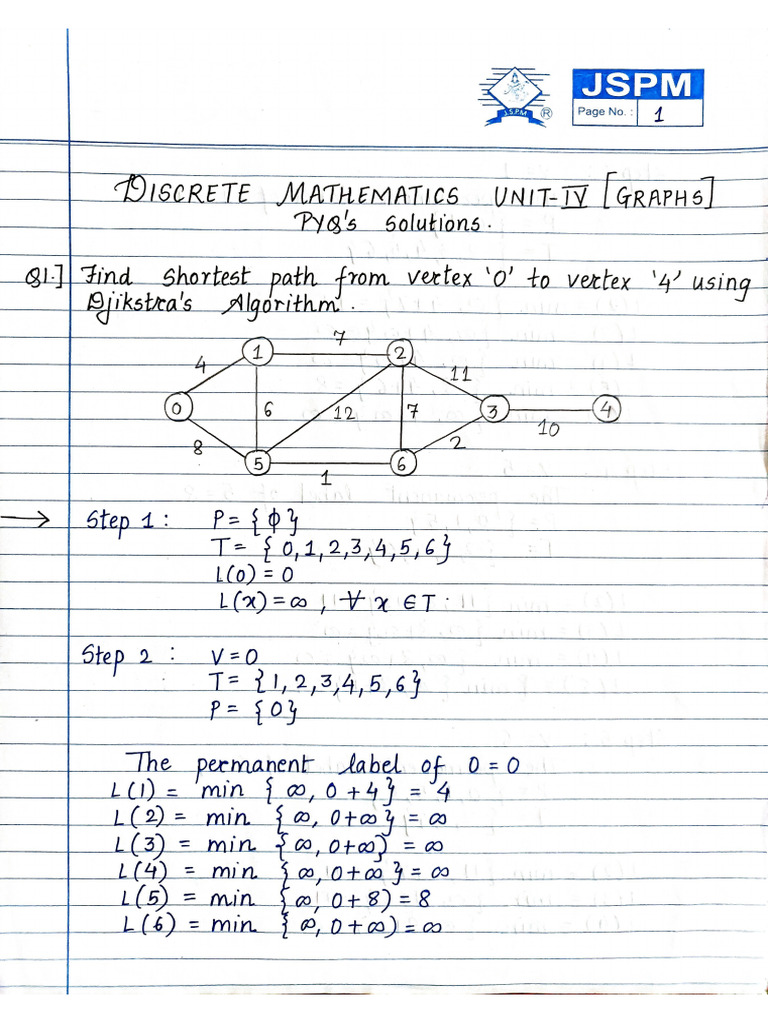 J.S.P.M
®
JSPM
Page No. : 1
DISCRETE MATHEMATICS UNIT-IV [GRAPHS]
PYQ's Solutions.
Q1.] Find shortest path from vertex '0' to vertex '4' using
Djikstra's Algorithm.
7
4
1
2
11
0
6
12
7
3
4
8
2
10
5
6
1
→ Step 1 : P = { ϕ }
T = { 0,1,2,3,4,5,6}
L(0) = 0
L(x) = ∞ , ∀ x ∈ T.
Step 2 : V = 0
T = {1,2,3,4,5,6}
P = {0}
The permanent label of 0 = 0
L(1) = min { ∞, 0 + 4} = 4
L(2) = min { ∞, 0+∞} = ∞
L(3) = min {∞, 0+∞) = ∞
L(4) = min {∞, 0+∞ } = ∞
L(5) = min {∞, 0+8) = 8
L(6) = min {∞, 0+∞) = ∞